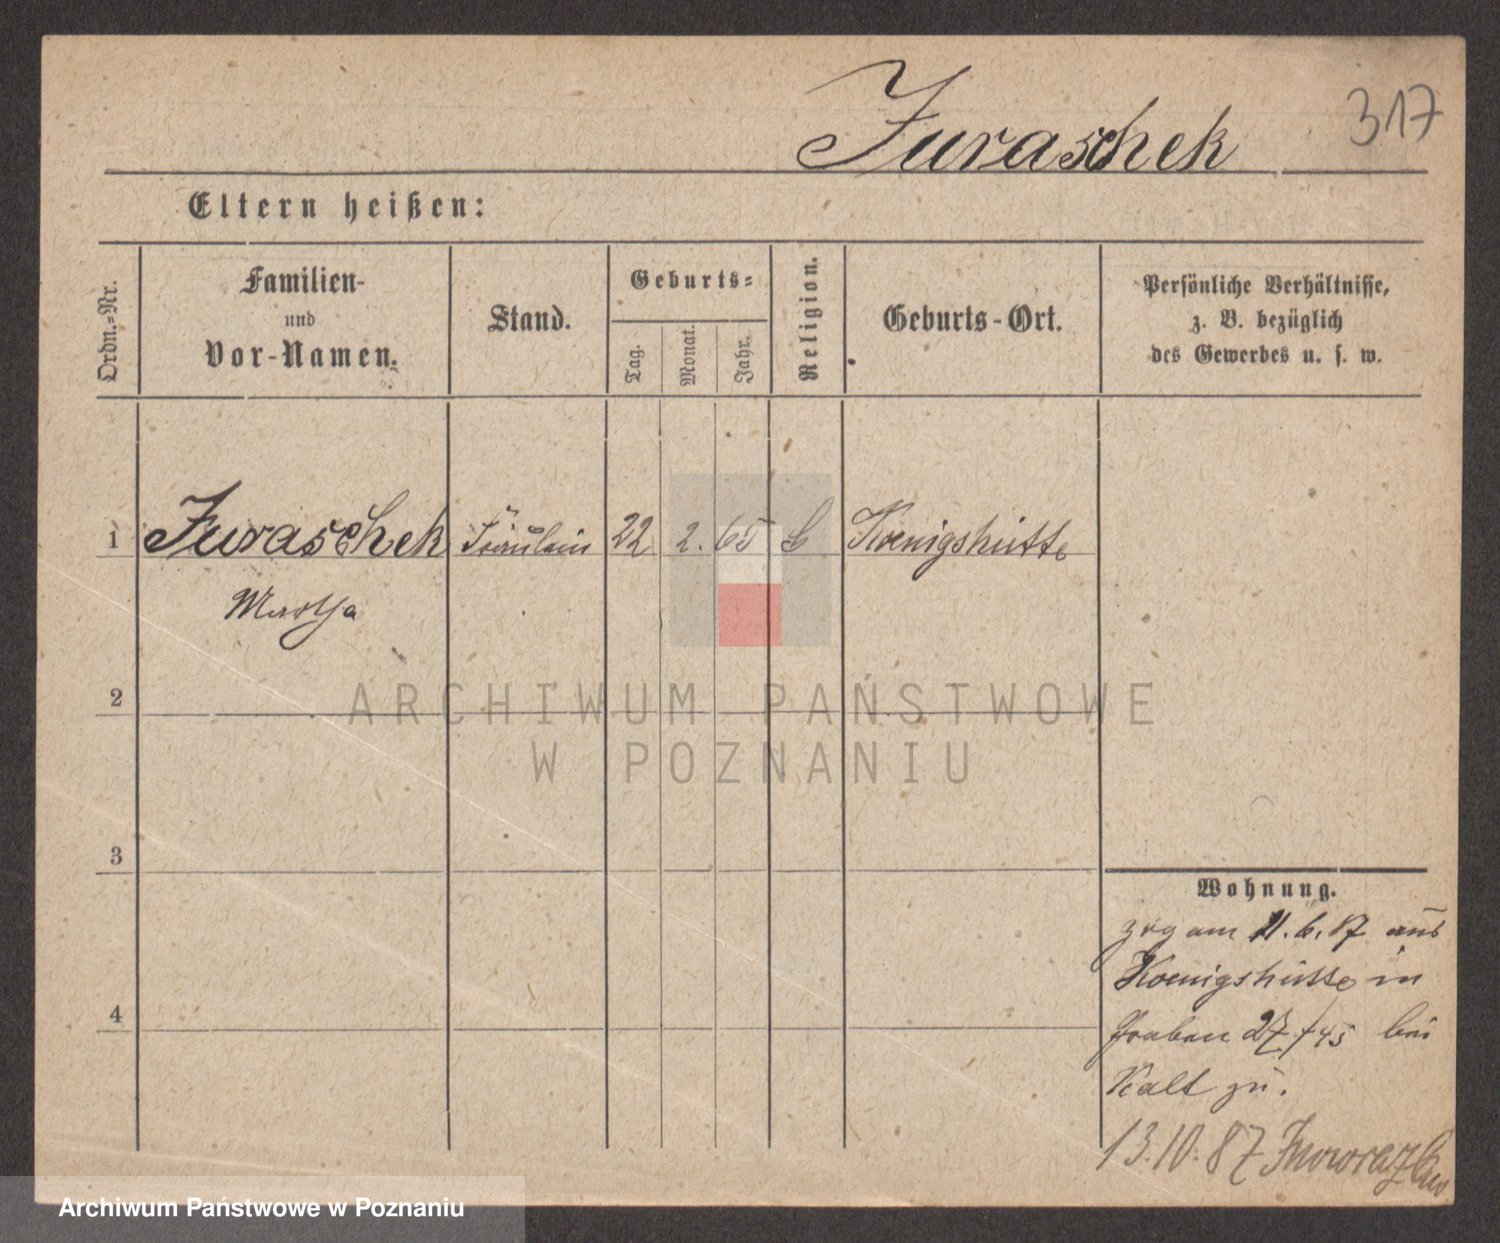 Juraschek
317
Eltern heißen:
Ordn.-Nr.
Familien-
und
Vor-Namen.
Stand.
Geburts-
Tag.
Monat.
Jahr.
Religion.
Geburts-Ort.
Persönliche Verhältnisse,
z. B. bezüglich
des Gewerbes u. s. w.
1
Juraschek
Fräulein
22
2.
65
Koenigshütte
Martha
2
3
4
Wohnung.
zog am 11.6.87 aus
Koenigshütte in
Graben 27/45 bei
Kalt zu.
13.10.87 Inowrazlaw
ARCHIWUM PAŃSTWOWE
W POZNANIU
Archiwum Państwowe w Poznaniu